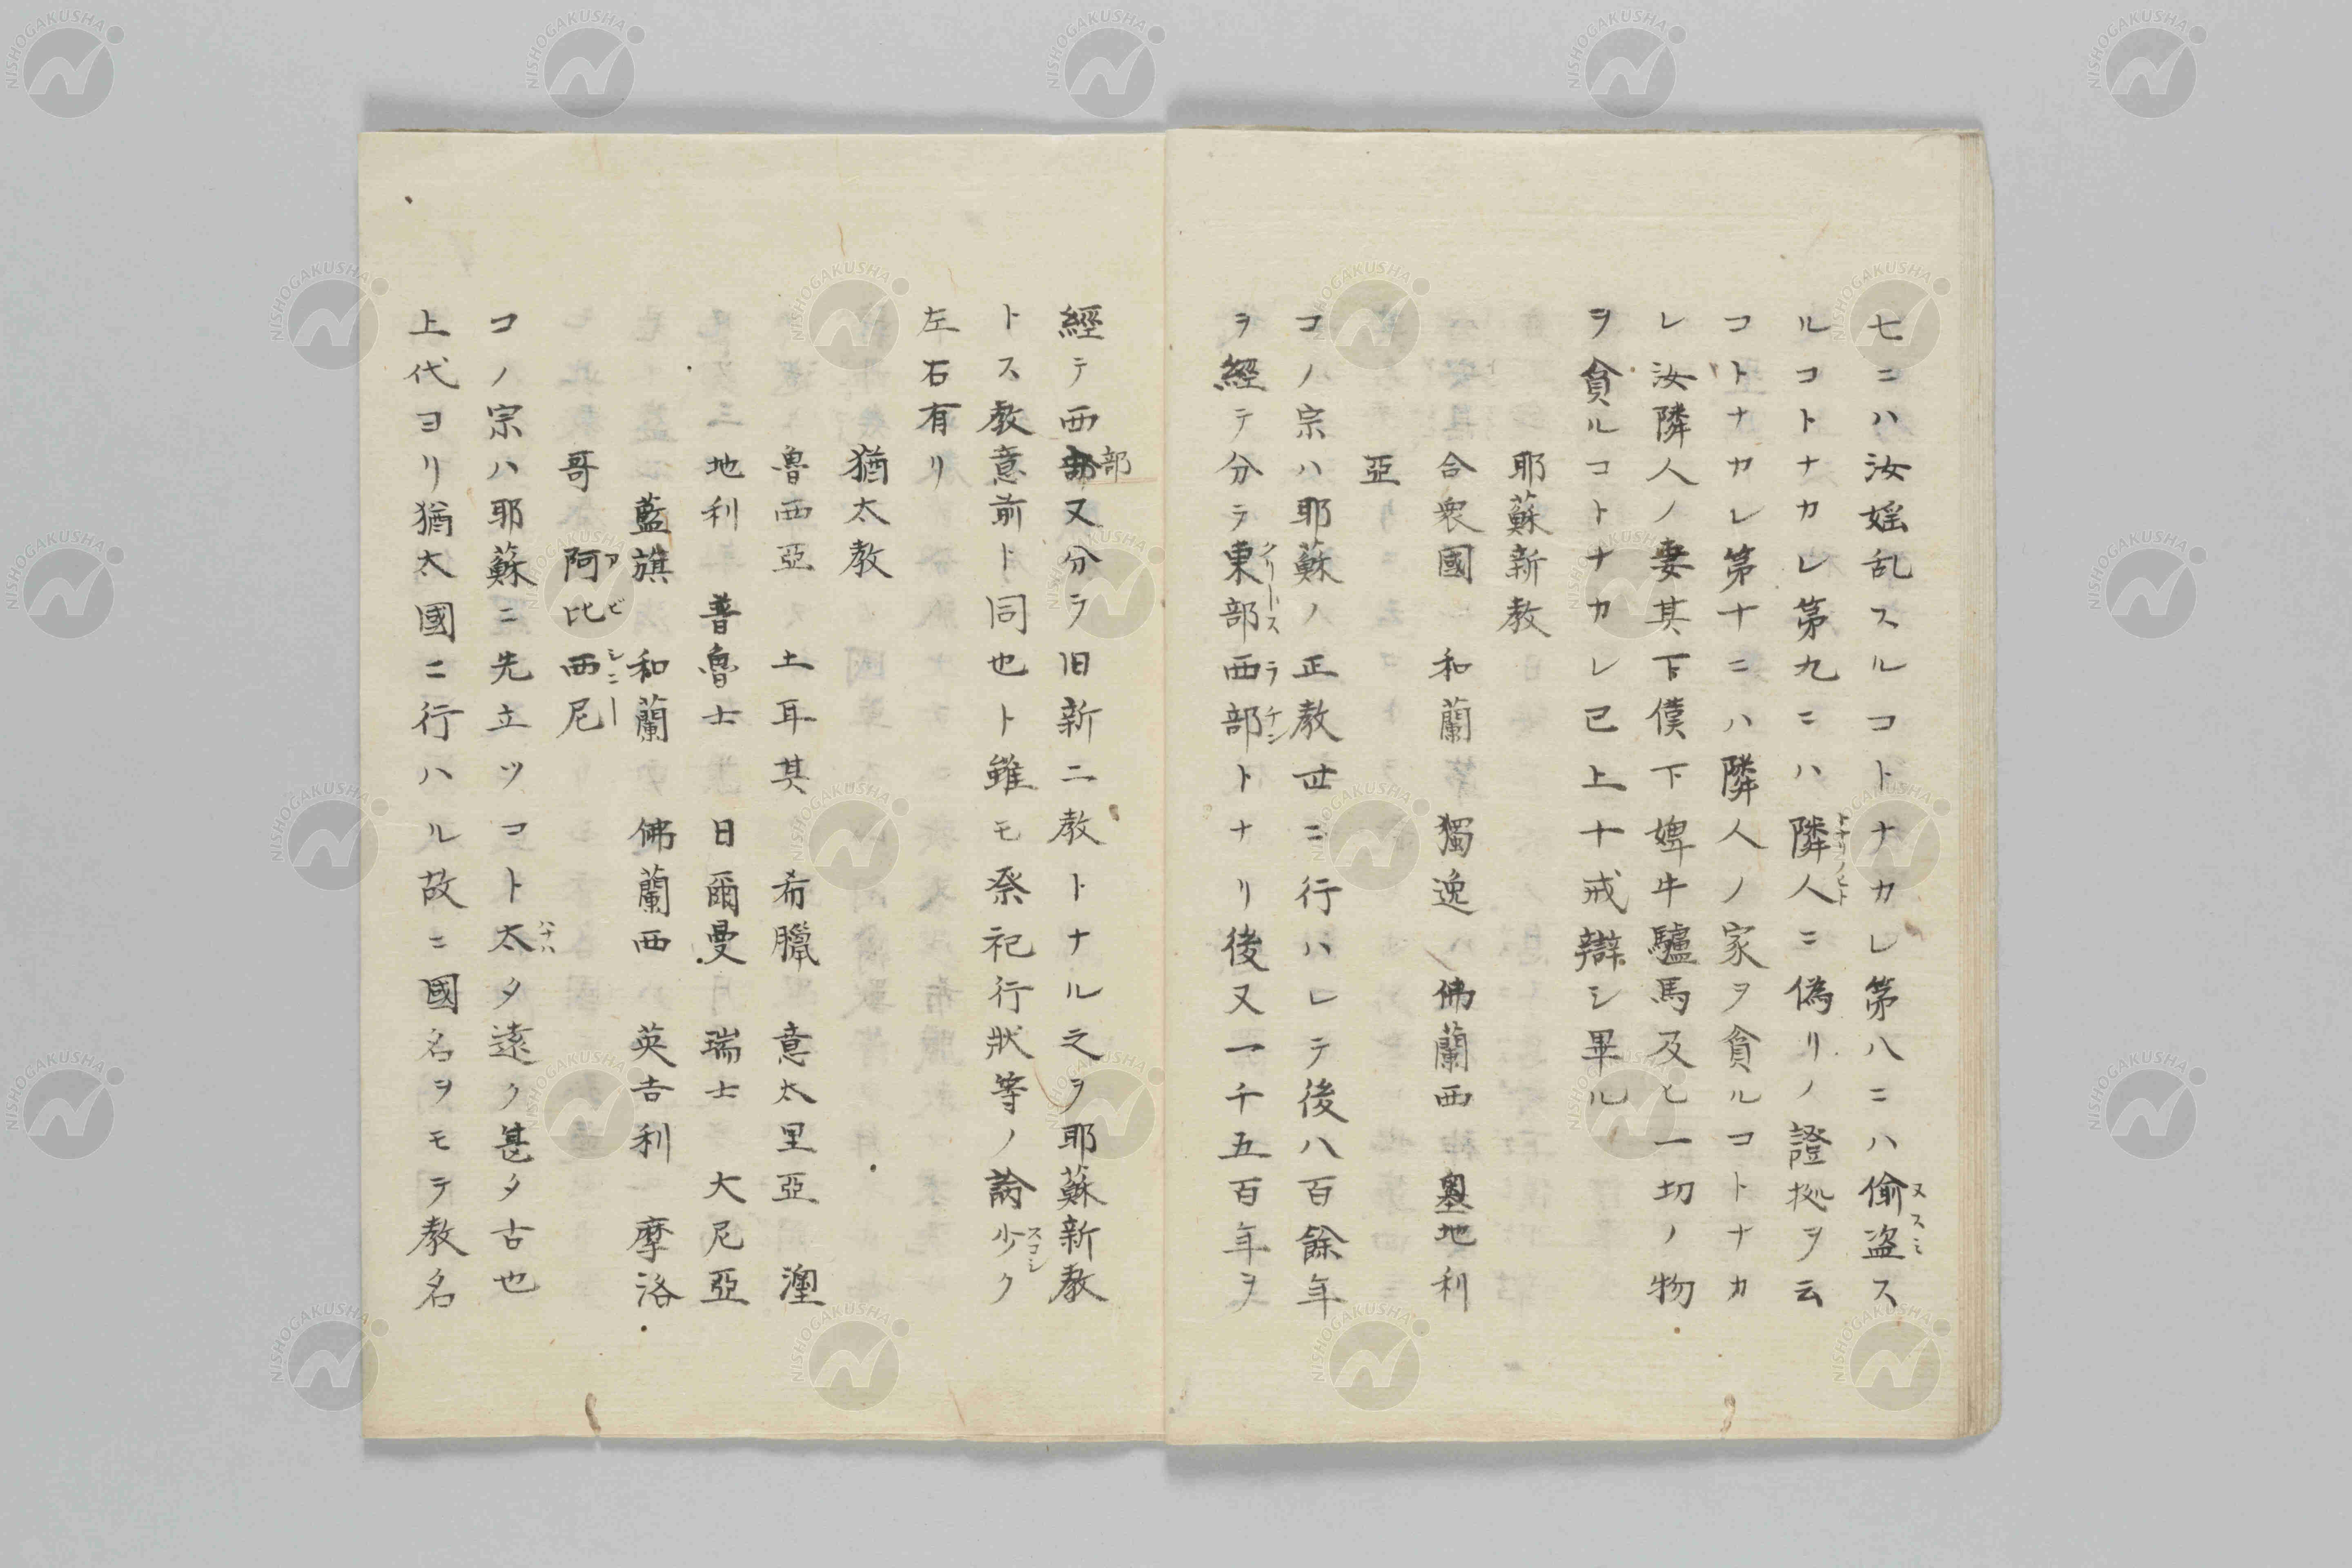 七ニハ汝婬乱スルコトナカレ第八ニハ偷盗ス
ルコトナカレ第九ニハ隣人ニ偽リノ證拠ヲ云
コトナカレ第十ニハ隣人ノ家ヲ貪ルコトナカ
レ汝隣人ノ妻其下僕下婢牛驢馬及ヒ一切ノ物
ヲ貪ルコトナカレ已上十戒辯シ畢ル
耶蘇新教
合衆國 和蘭 獨逸 佛蘭西 墺地利
亞
コノ宗ハ耶蘇ノ正教世ニ行ハレテ後八百餘年
ヲ經テ分ラ東部西部トナリ後又一千五百年ヲ
經テ西部又分ラ旧新二教トナル之ヲ耶蘇新教
トス教意前ト同也ト雖モ祭祀行狀等ノ論少ク
左右有リ
猶太教
魯西亞 土耳其 希臘 意太里亞 澳
地利 普魯士 日爾曼 瑞士 大尼亞
藍旗 和蘭 佛蘭西 英吉利 摩洛
哥 阿比西尼
コノ宗ハ耶蘇ニ先立ツコト太タ遠ク甚タ古也
上代ヨリ猶太國ニ行ハル故ニ國名ヲモテ教名
ヌスミ
トナリノヒト
グリートス
ラテン
部
スコシ
アビシニー
ハナハ
NISHOGAKUSHA